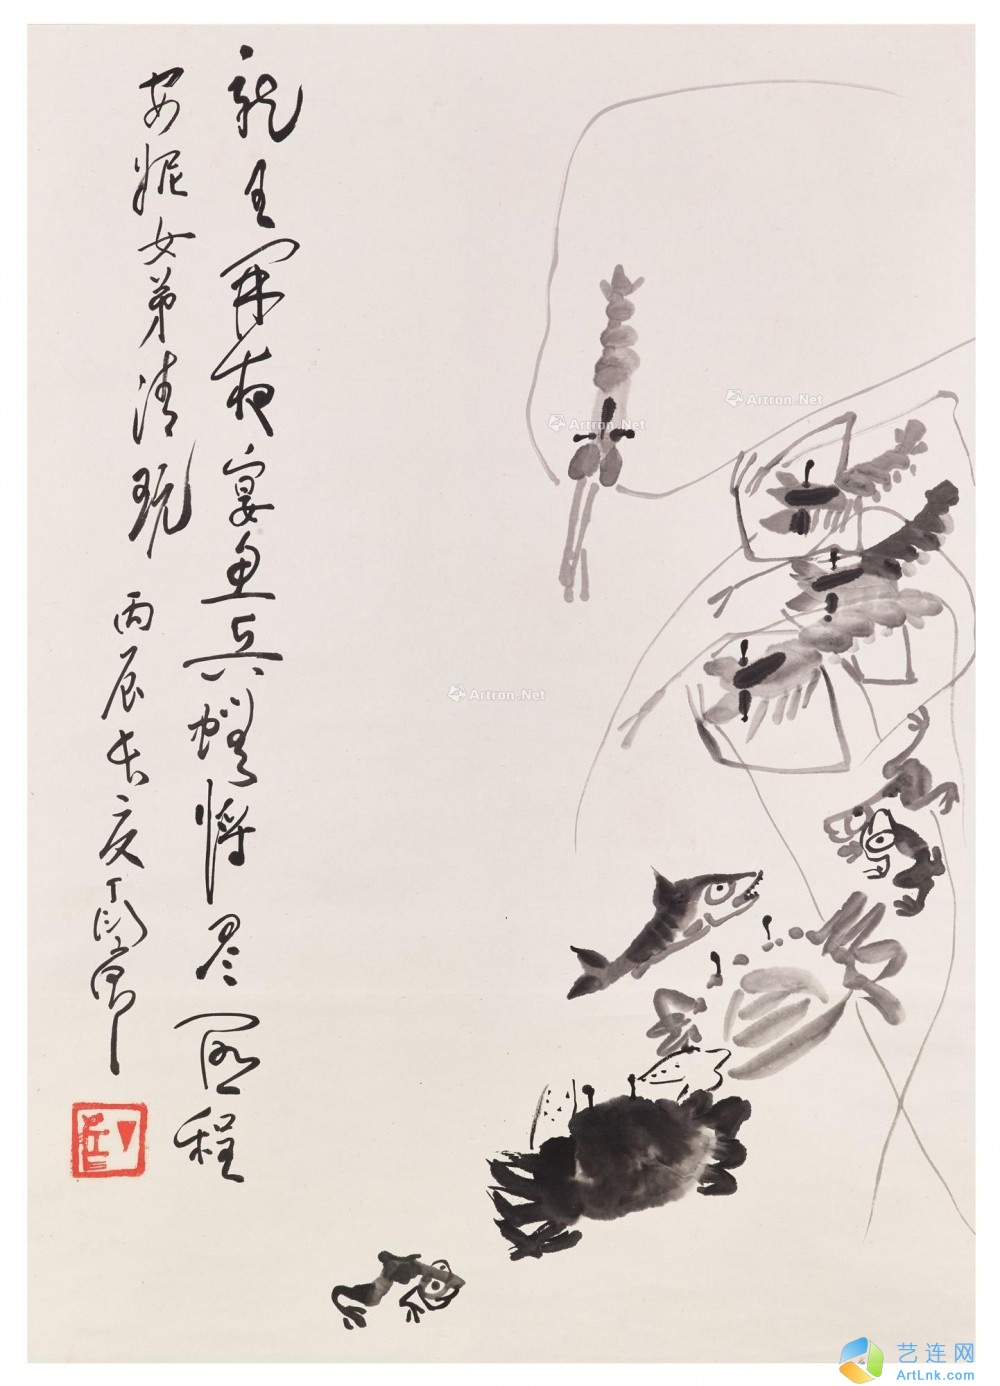 龍王開夜宴魚兵蝦將尽程
安妮女弟清玩 丙辰长夏 丁衍庸
Artron.Net
Artron.Net
Artron.Net
艺连网
ArtLnk.com